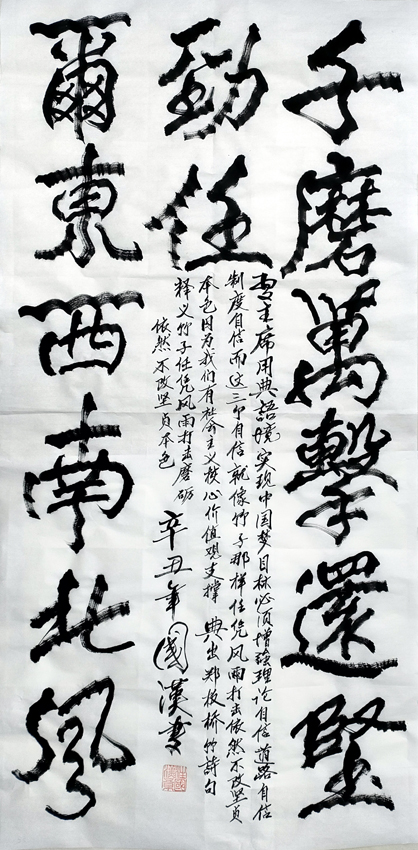 千磨萬擊還堅
勁任
爾東西南北風
習主席用典語境实现中国梦目标必须增强理论自信道路自信
制度自信而这三个自信就像竹子那样任凭风雨打击依然不改坚贞
本色因为我们有社会主义核心价值观支撑 典出郑板桥竹詩句
释义竹子任凭风雨打击磨砺
依然不改坚贞本色
辛丑年國漢書